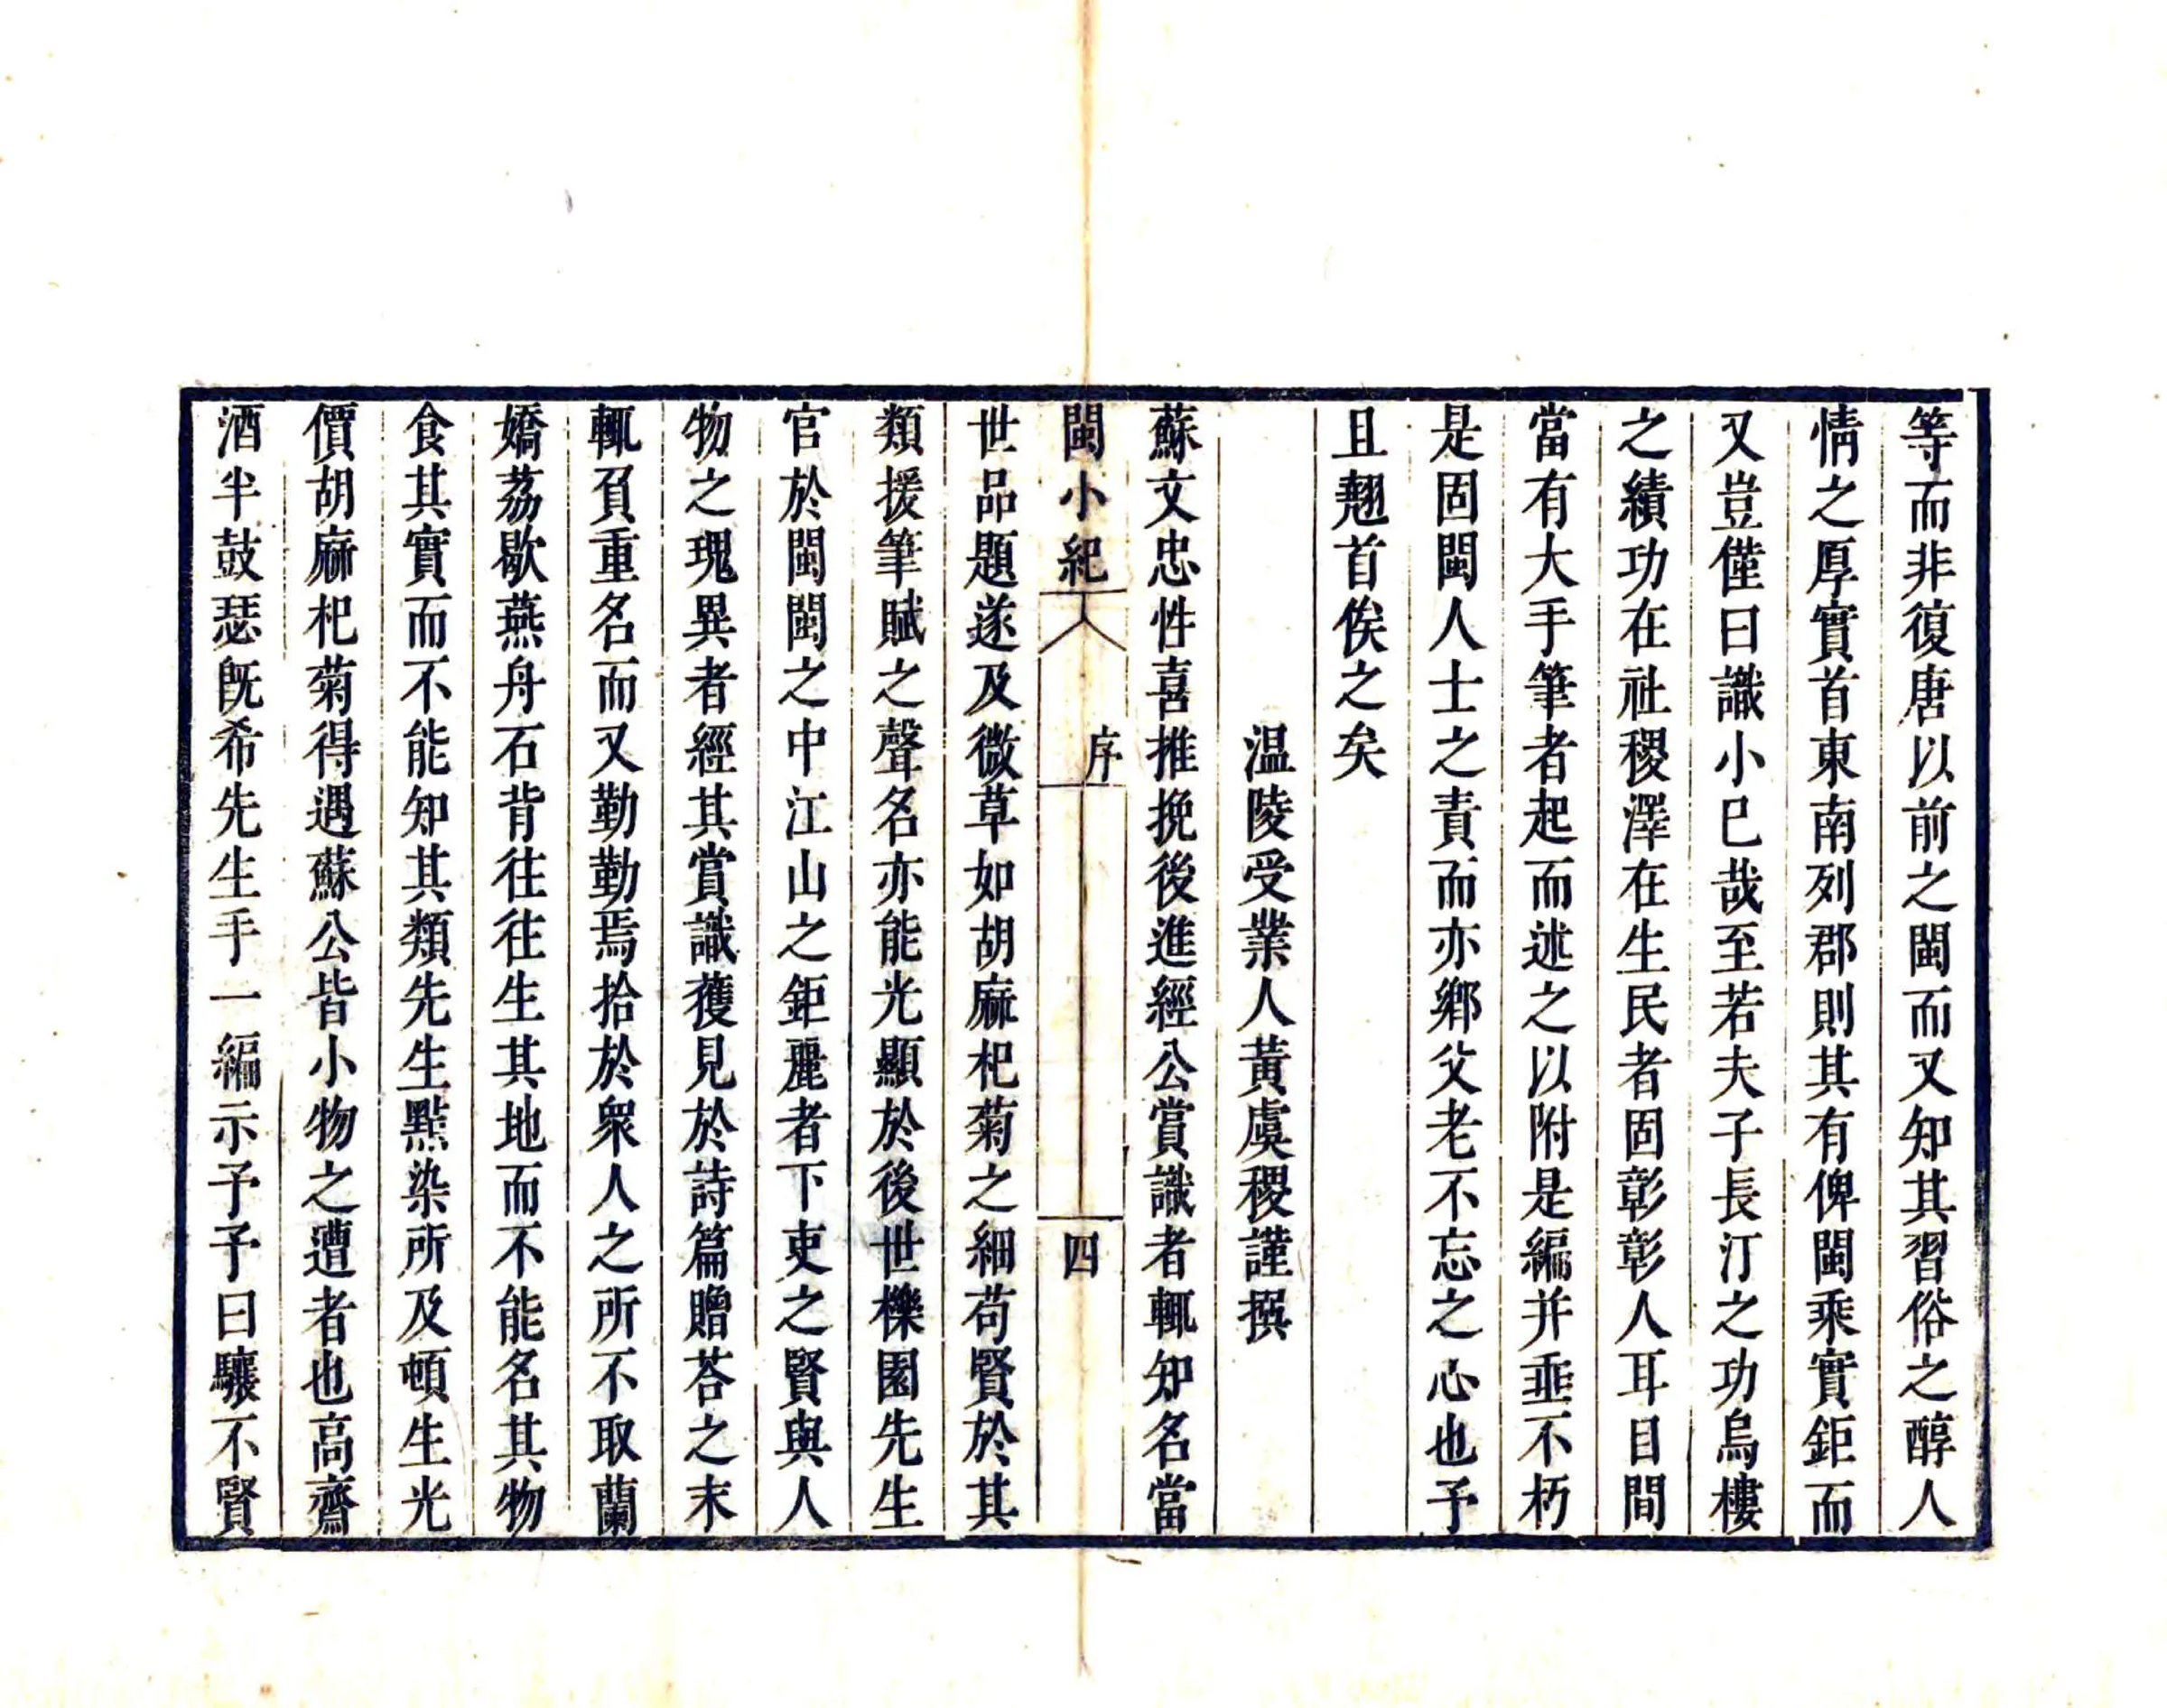 等而非復唐以前之閩而又知其習俗之醇人
情之厚實首東南列郡則其有俾閩乘實鉅而
又豈僅曰識小巳哉至若夫子長汀之功烏樓
之績功在社稷澤在生民者固彰彰人耳目間
當有大手筆者起而述之以附是編并垂不朽
是固閩人士之責而亦鄉父老不忘之心也予
且翹首俟之矣
温陵受業人黃虞稷謹撰
蘇文忠性喜推挽後進經公賞識者輒知名當
閩小紀 序 四
世品題遂及微草如胡麻杞菊之細苟賢於其
類援筆賦之聲名亦能光顯於後世櫟園先生
官於閩閩之中江山之鉅麗者下吏之賢與人
物之瑰異者經其賞識獲見於詩篇贈荅之末
輒負重名而又勤勤焉拾於衆人之所不取蘭
嬌荔歇燕舟石背往往生其地而不能名其物
食其實而不能知其類先生點染所及頓生光
價胡麻杞菊得遇蘇公皆小物之遭者也高齋
酒半鼓瑟旣希先生手一編示予予曰驤不賢